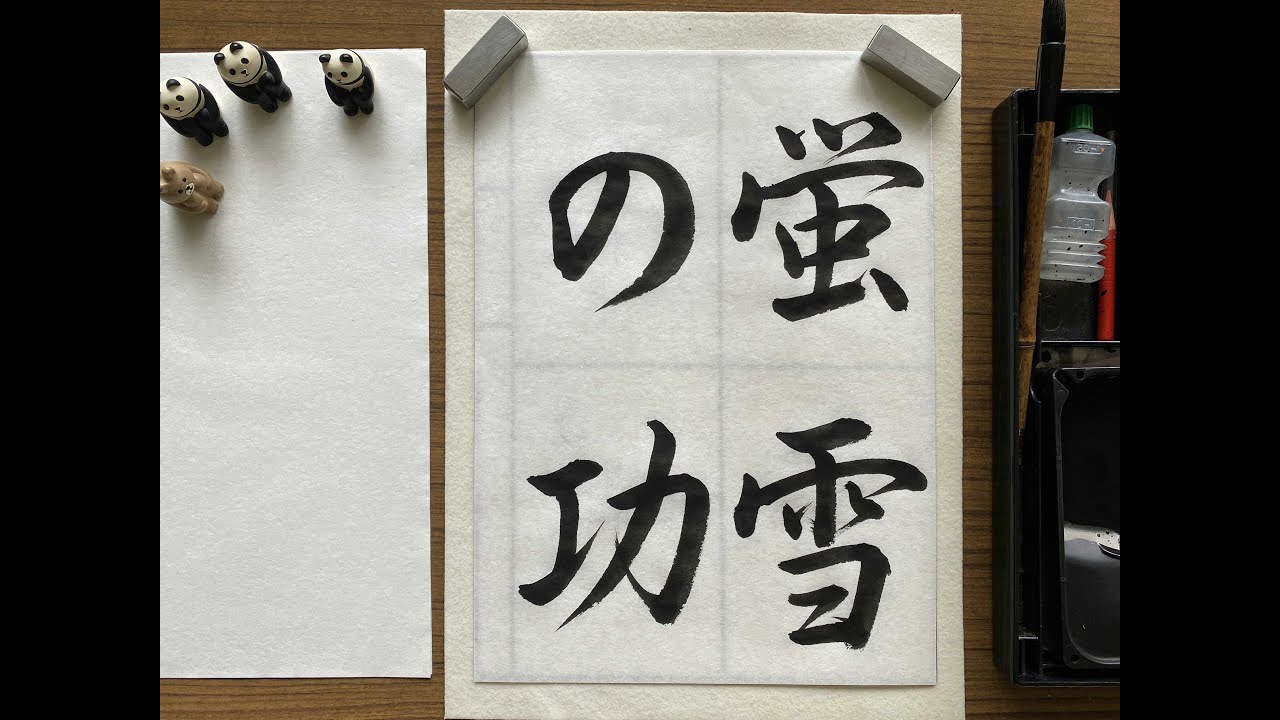 蛍雪
の功